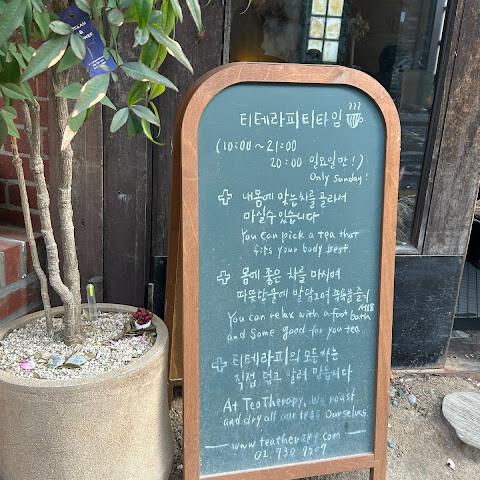 티테라피 티타임
(10:00~21:00
20:00 일요일만!)
Only Sunday!
내몸에 맞는 차를 골라서
마실수 있습니다
You can pick a tea that
fits your body best
몸에 좋은 차를 마시며
따뜻한 물에 발담그며 족욕을
You can relax with a foot bath
and some good for you tea.
티테라피의 모든차는
직접 덖고 말려 만듭니다
At Tea Therapy, We roast
and dry all our teas Ourselves.
www.teatherapy.com
02. 730 7507